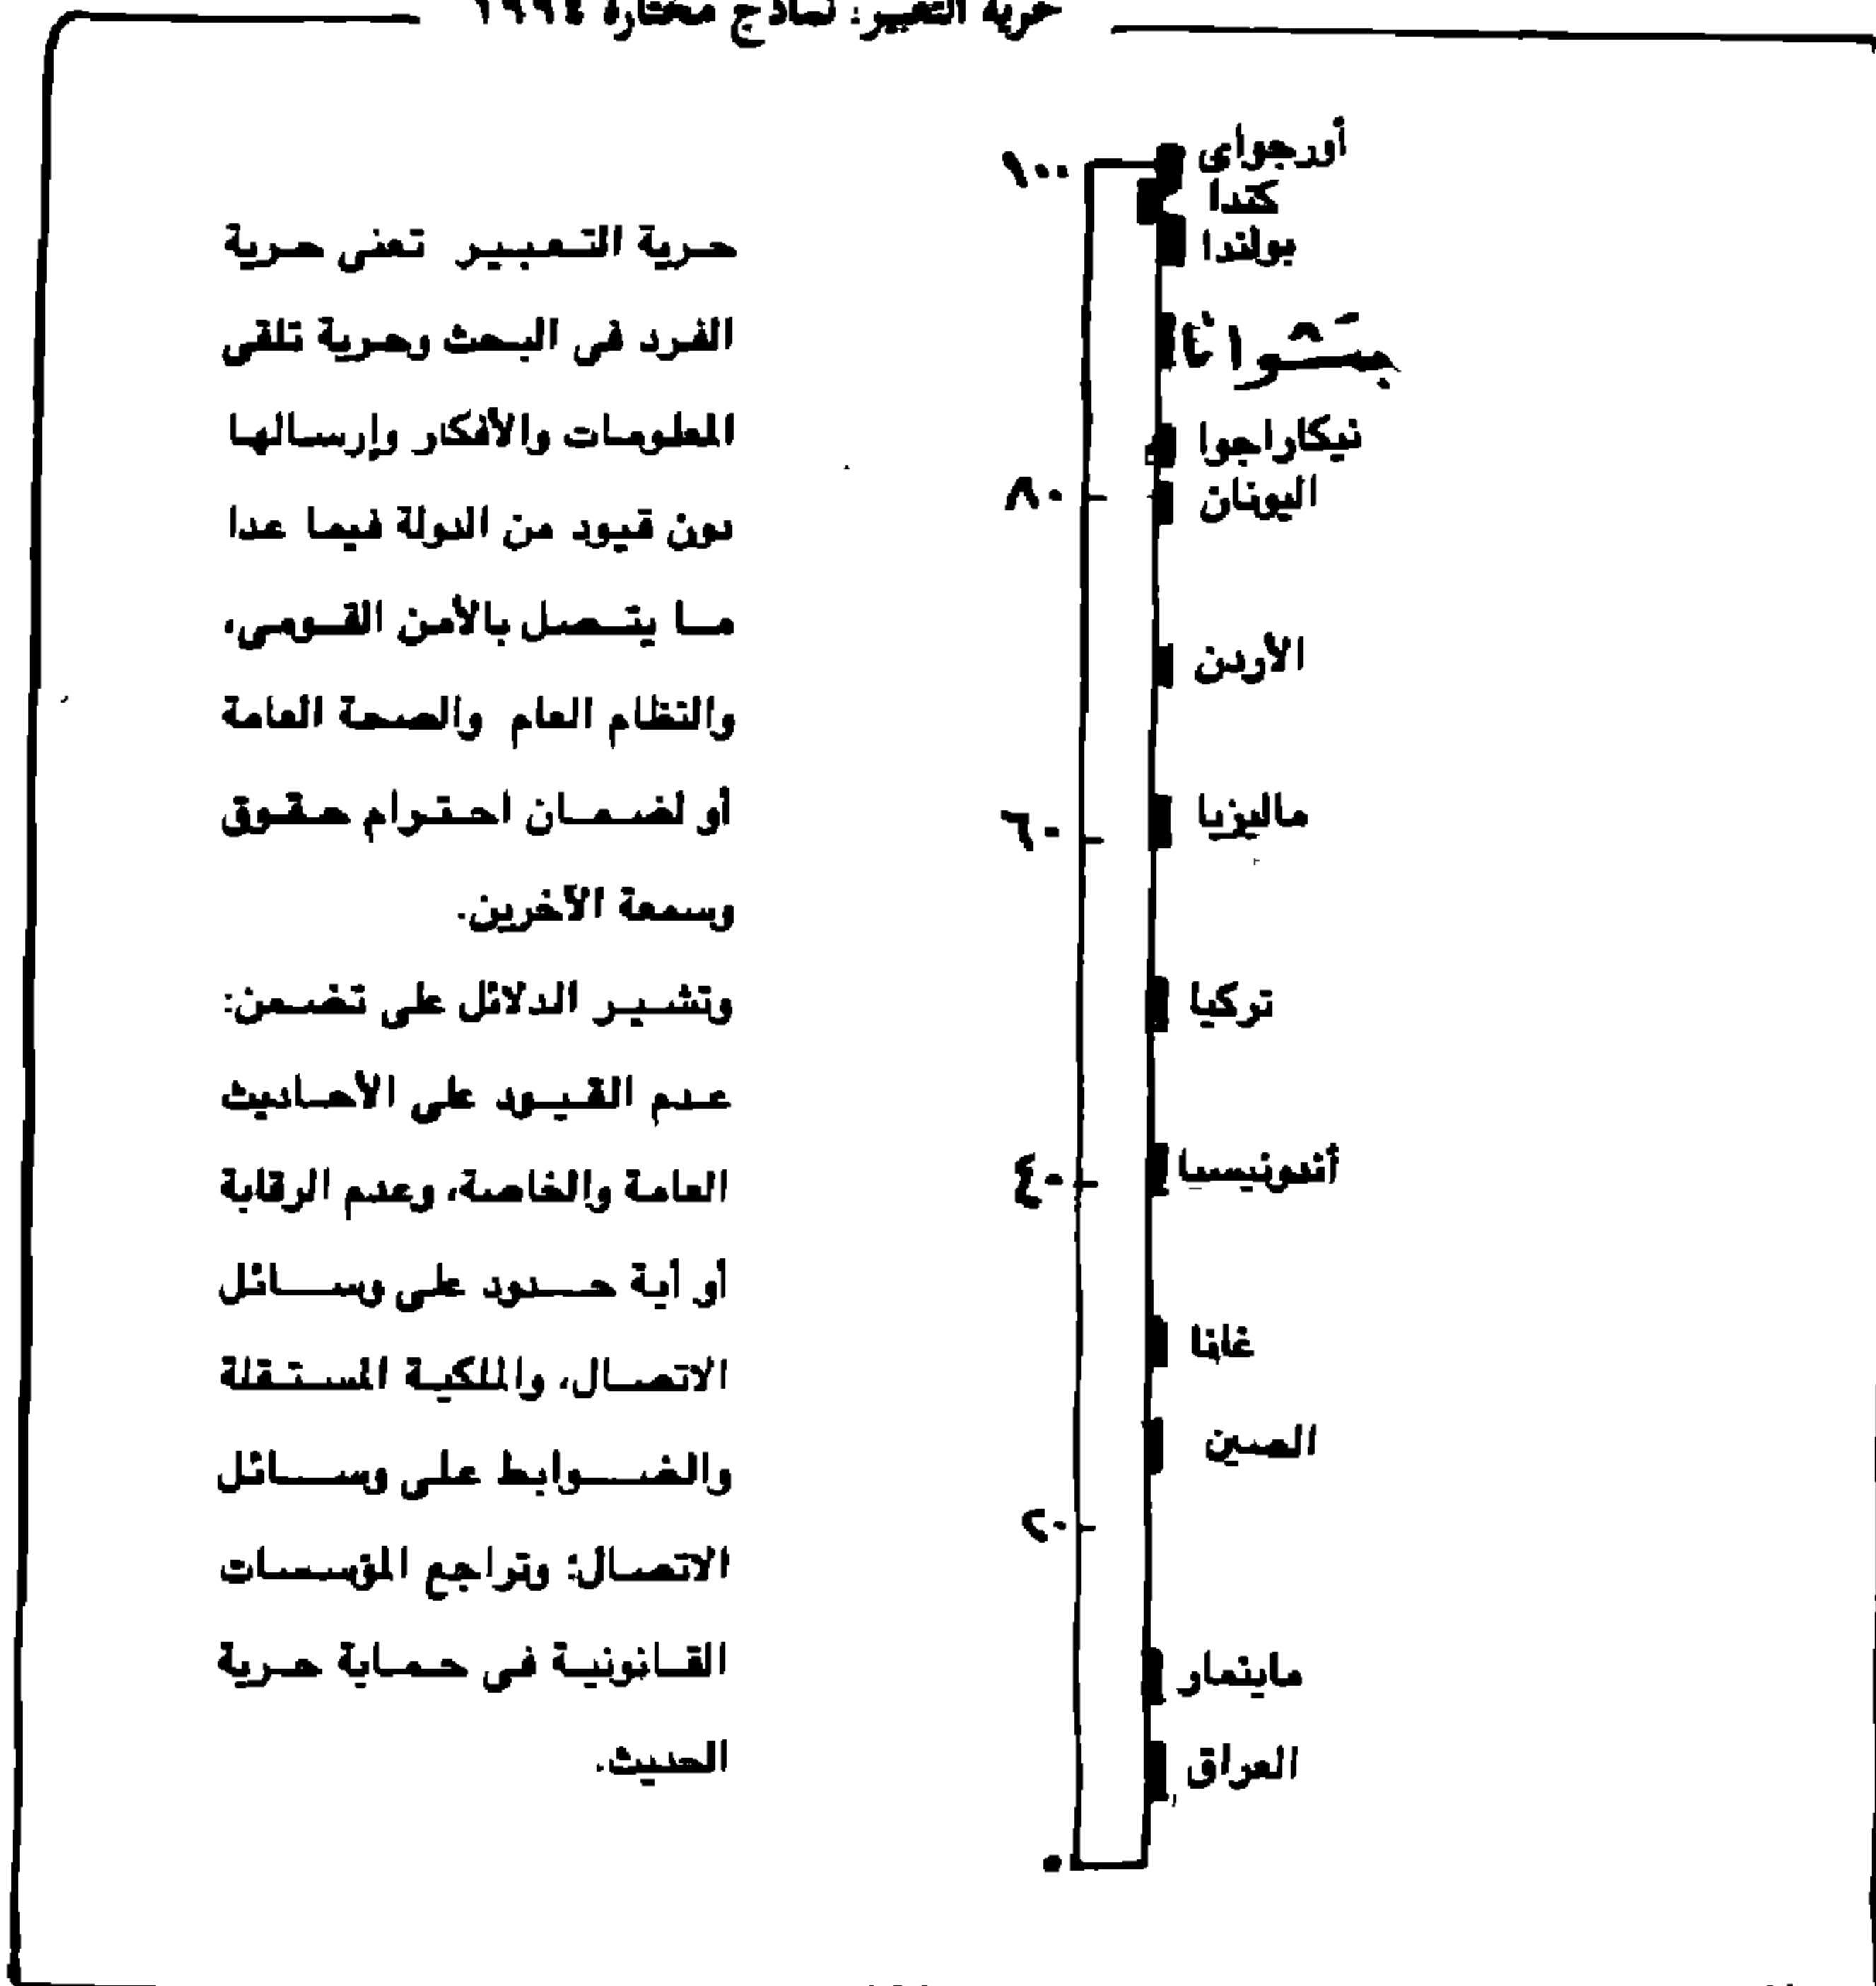 حرية التعبير: نماذج مختارة ١٩٩٤
أورجواى
١٠٠
كندا
بولندا
بتسوانا
نيكاراجوا
اليونان
٨٠
الأردن
ماليزيا
٦٠
تركيا
أندونيسيا
٤٠
غانا
الصين
٢٠
ماينمار
العراق
٠
حرية التعبير تعنى حرية
الفرد فى البحث وحرية تلقى
المعلومات والأفكار وإرسالها
دون قيود من الدولة فيما عدا
ما يتصل بالأمن القومى،
والنظام العام والصحة العامة
أو لضمان احترام حقوق
وسمعة الآخرين.
وتشير الدلائل على تضمن:
عدم القيود على الأحاديث
العامة والخاصة، وعدم الرقابة
أو أية حدود على وسائل
الاتصال، والملكية المستقلة
والضوابط على وسائل
الاتصال: وتراجع المؤسسات
القانونية فى حماية حرية
الحديث.